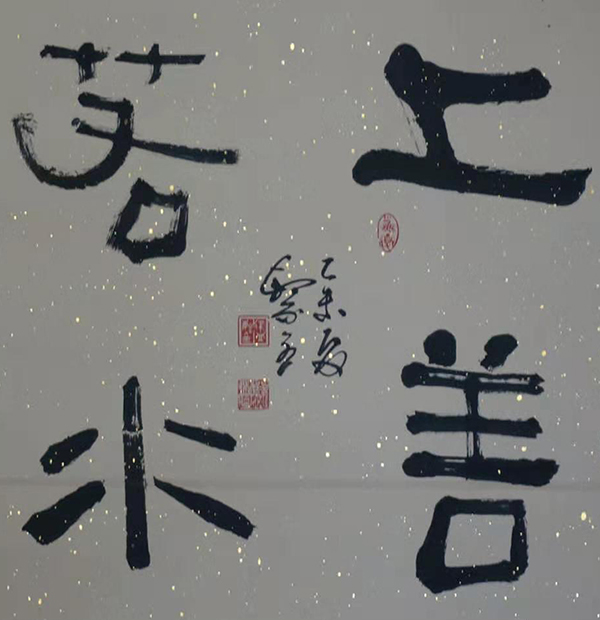 上善
若水
乙未夏